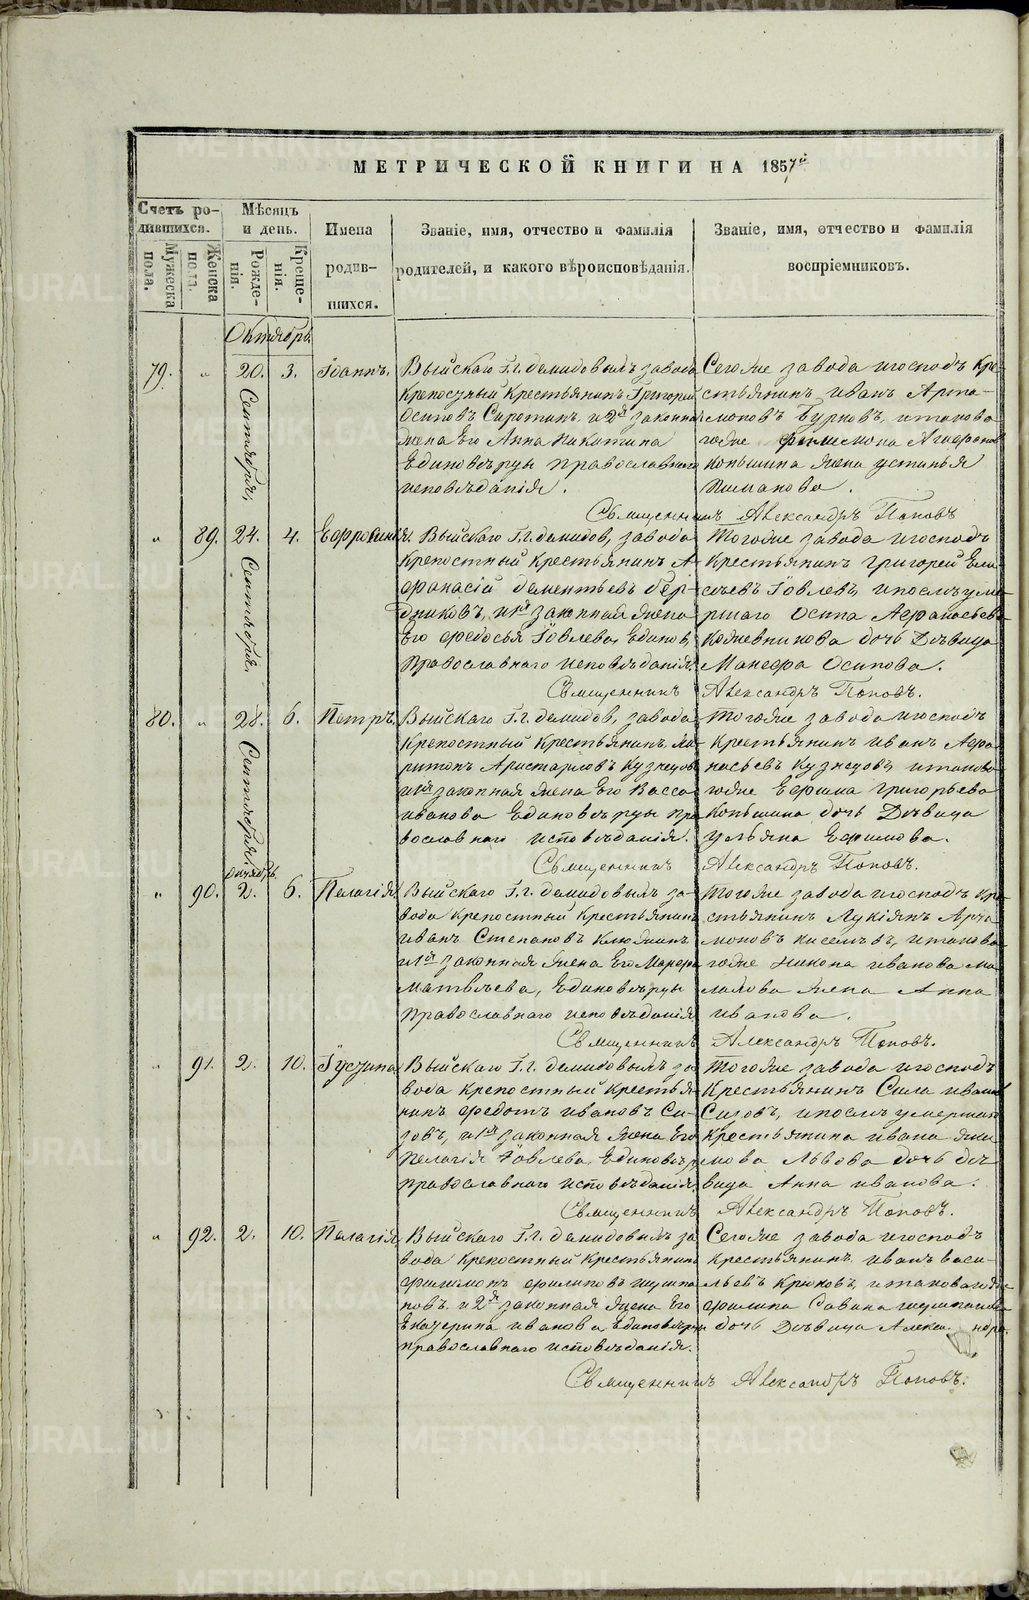 МЕТРИЧЕСКОЙ КНИГИ НА 1857й
Счетъ ро-
дившихся.
Мужеска
пола.
Женска
пола.
Мѣсяцъ
и день.
Рожде-
нія.
Креще-
нія.
Имена
родив-
шихся.
Званіе, имя, отчество и фамилія
родителей, и какого вѣроисповѣданія.
Званіе, имя, отчество и фамилія
воспріемниковъ.
Октябрь.
79. " 20. Сентября. 3. Іоаннъ.
Выйскаго Г.г. Демидовыхъ завода
Крепосный Крестьянинъ Григорей
Осиповъ Сиротинъ, и 2я законная
жена Его Анна Никитина
Единовѣрцы православнаго
исповѣданія.
Сегоже завода и господъ Кре-
стьянинъ Иванъ Арта-
моновъ Бурковъ, и таково
гоже Филимона
Копьшина жена Устинья
Пиманова.
Священникъ Александръ Поповъ
" 89. 24. Сентября. 4. Евфросинія.
Выйскаго Г.г. Демидов, завода
Крепостный Крестьянинъ А-
фанасій Дементьевъ
и 1я законная жена
Его Федосья Іовлева, Единов,
Православнаго исповѣданія.
Тогоже завода и господъ
Крестьянинъ Григорей Ели-
сѣевъ Іовлевъ, и послѣ уме-
ршаго Осипа Афанасьева
Кодневникова дочь Дѣвица
Манефа Осипова.
Священникъ Александръ Поповъ.
80. " 28. Сентября. 6. Петръ.
Выйскаго Г.г. Демидов, завода
Крепостный Крестьянинъ Ха-
ритонъ Аристарховъ Кузнецовъ
и 1я законная жена Его Васса
Иванова Единовѣрцы пра
вославнаго исповѣданія.
Тогоже завода и господъ
Крестьянинъ Иванъ Афа-
насьевъ Кузнецовъ, и таково
гоже Ефима Григорьева
Копьшина дочь Дѣвица
Ульяна Ефимова.
Священникъ Александръ Поповъ.
Октябрь.
" 90. 2. 6. Пелагія.
Выйскаго Г.г. Демидовыхъ за-
вода Крепостный Крестьянинъ
Иванъ Степановъ Клюжинъ
и 1я законная жена Его Марфа
Матвѣева, Единовѣрцы
Православнаго исповѣданія
Тогоже завода и господъ Кре-
стьянинъ Лукіянъ Арта
моновъ Киселевъ, и таково
гоже Никона Иванова Ма-
лахова жена Анна
Иванова.
Священникъ Александръ Поповъ.
" 91. 2. 10. Іустина
Выйскаго Г.г. Демидовыхъ за
вода Крепостный Крестья
нинъ Федотъ Ивановъ Си-
зовъ, и 1я законная жена Его
Пелагія Іовлева, Единовѣр,
православнаго исповѣданія.
Тогоже завода и господъ
Крестьянинъ Сила Ивановъ
Сизовъ, и послѣ умершаго
Крестьянина Ивана Яки
мова Львова дочь дѣ
вица Анна Иванова.
Священникъ Александръ Поповъ.
" 92. 2. 10. Пелагія
Выйскаго Г.г. Демидовыхъ за
вода Крепостный Крестьянинъ
Филимонъ Филиповъ Шумпа
новъ и 2я законная жена Его
Екатерина Иванова Единовѣрцы
православнаго исповѣданія.
Сегоже завода и господъ
Крестьянинъ Иванъ Васи-
льевъ Крюковъ, и таковагоже
Филипа Савина
дочь Дѣвица Алекса ндра.
Священникъ Александръ Поповъ.
METRIKI.GASO-URAL.RU